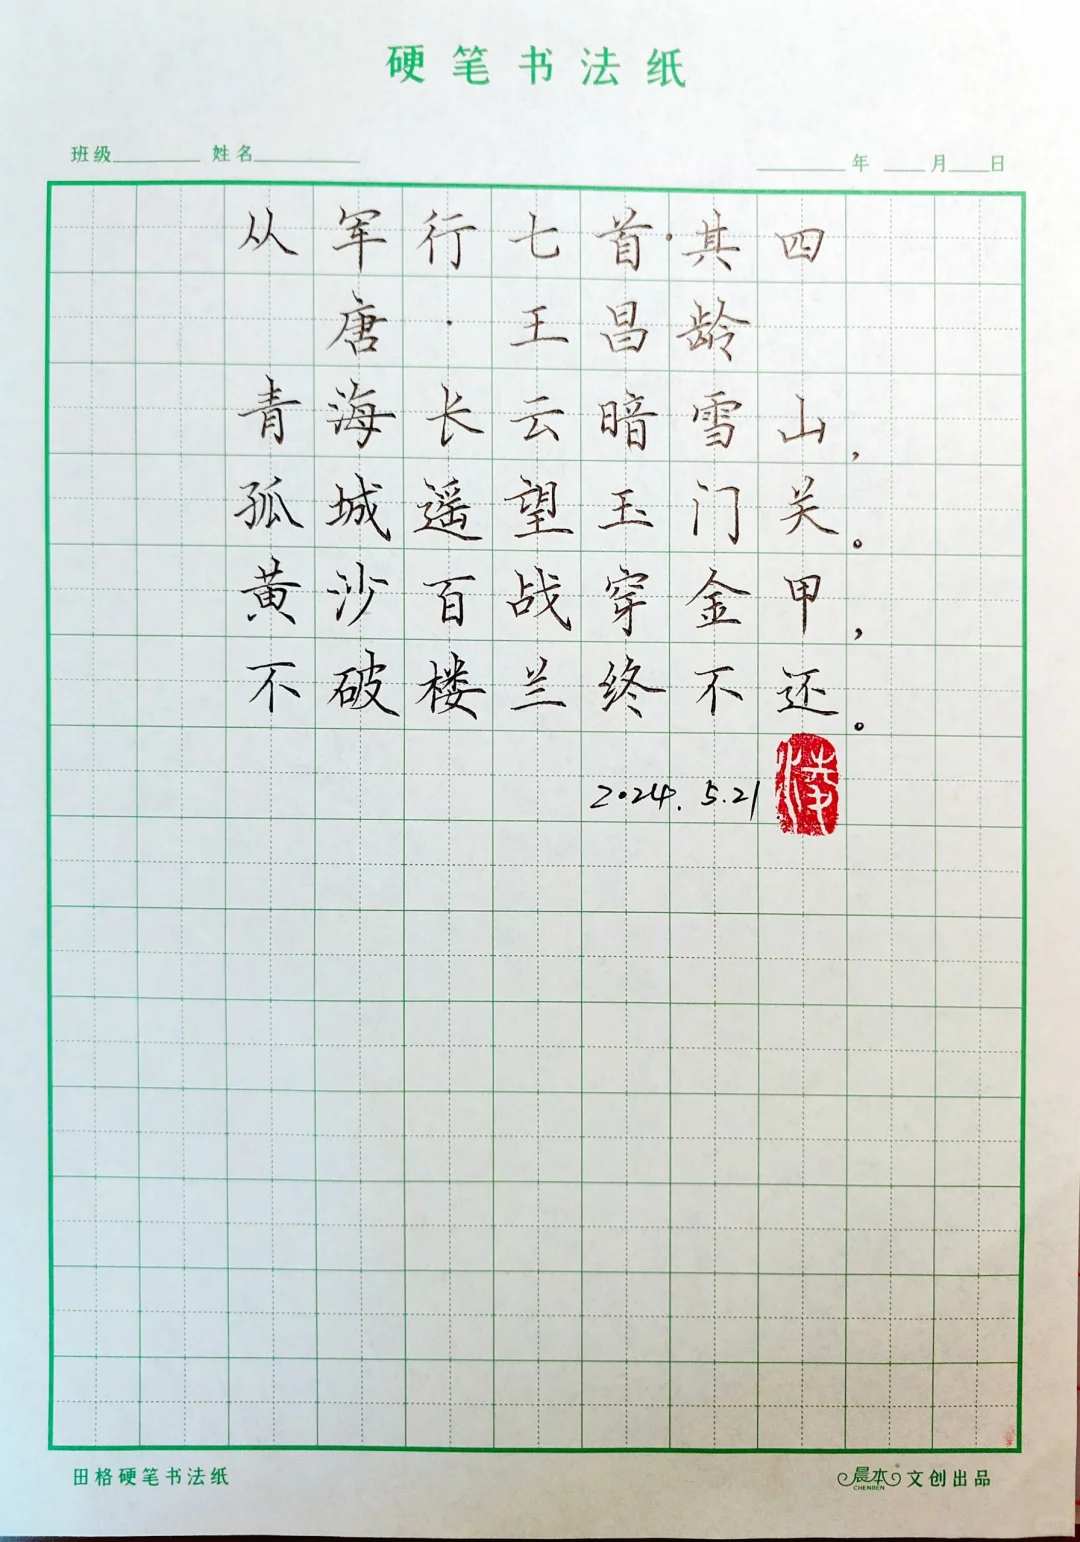 硬笔书法纸
班级 姓名 年 月 日
从军行七首·其四
唐·王昌龄
青海长云暗雪山，
孤城遥望玉门关。
黄沙百战穿金甲，
不破楼兰终不还。
2024.5.21
田格硬笔书法纸 晨本 CHENBEN 文创出品